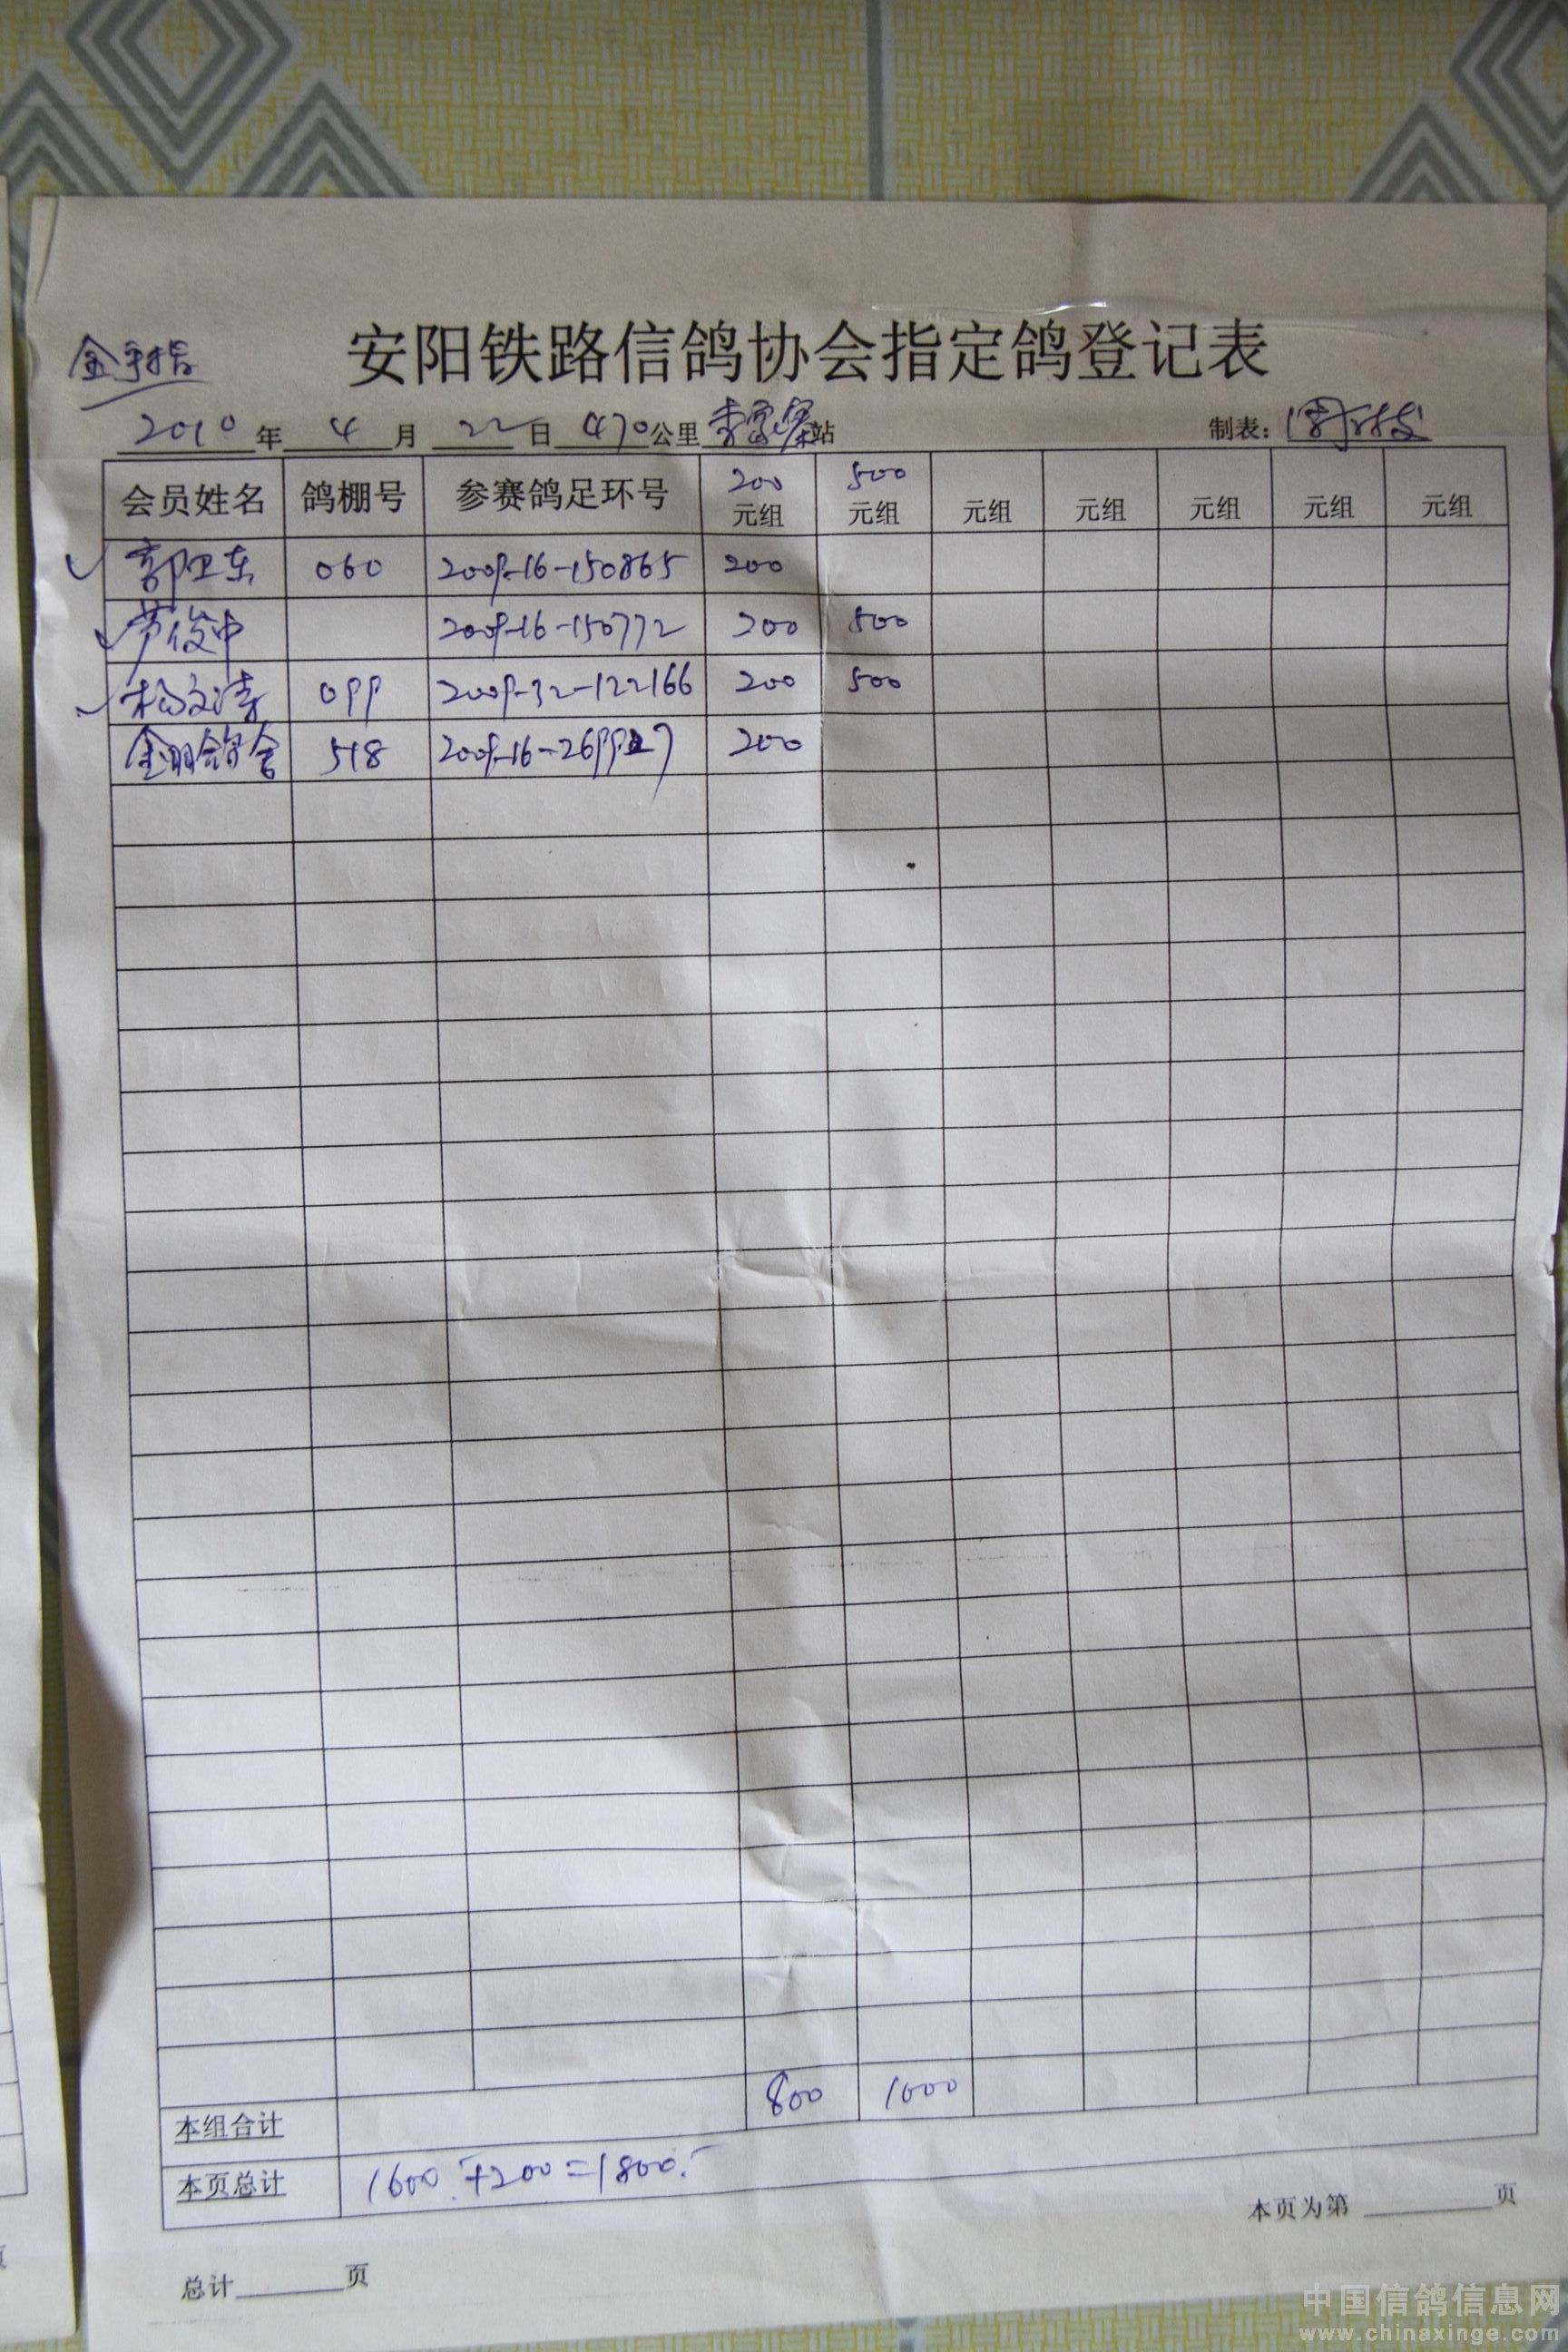 安阳铁路信鸽协会指定鸽登记表
2010 年 4 月 22 日 470 公里 李家寨 站 制表:
会员姓名 鸽棚号 参赛鸽足环号 200元组 500元组 元组 元组 元组 元组 元组
郭卫东 060 2009-16-150865 200
芦俊中 2009-16-150772 200 500
杨文涛 099 2009-32-122166 200 500
金羽鸽舍 518 2009-16-269927 200
本组合计 800 1000
本页总计 1600.+200=1800.-
本页为第 页
总计 页
中国信鸽信息网
www.chinaxinge.com